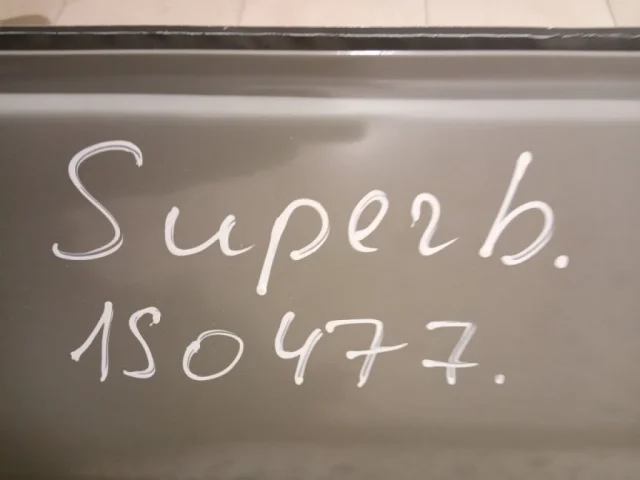 Superb.
150477.